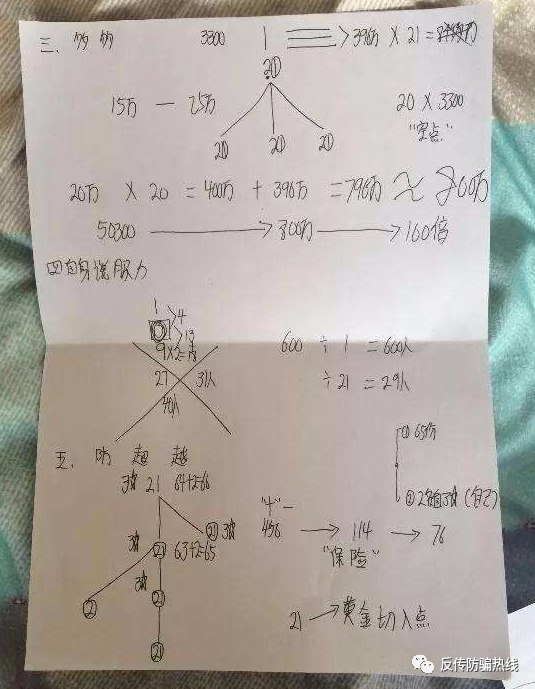 三、 3300 1 > 396万 × 21 =
20
15万 — 25万 20 × 3300
20 20 20 "空点"
20万 × 20 = 400万 + 396万 = 796万 ≈ 800万
50300 → 800万 → 160倍
四 自身说服力
1 > 4
> 13
9×2=18
27 31人
40人
600 ÷ 1 = 600人
÷ 21 = 29人
五、防 超 越
21 64+2=66
① 65份
21 63+2=65
"4"—
456 → 114 → 76
"保险"
21 → 黄金切入点
21
21
21
反传防骗热线